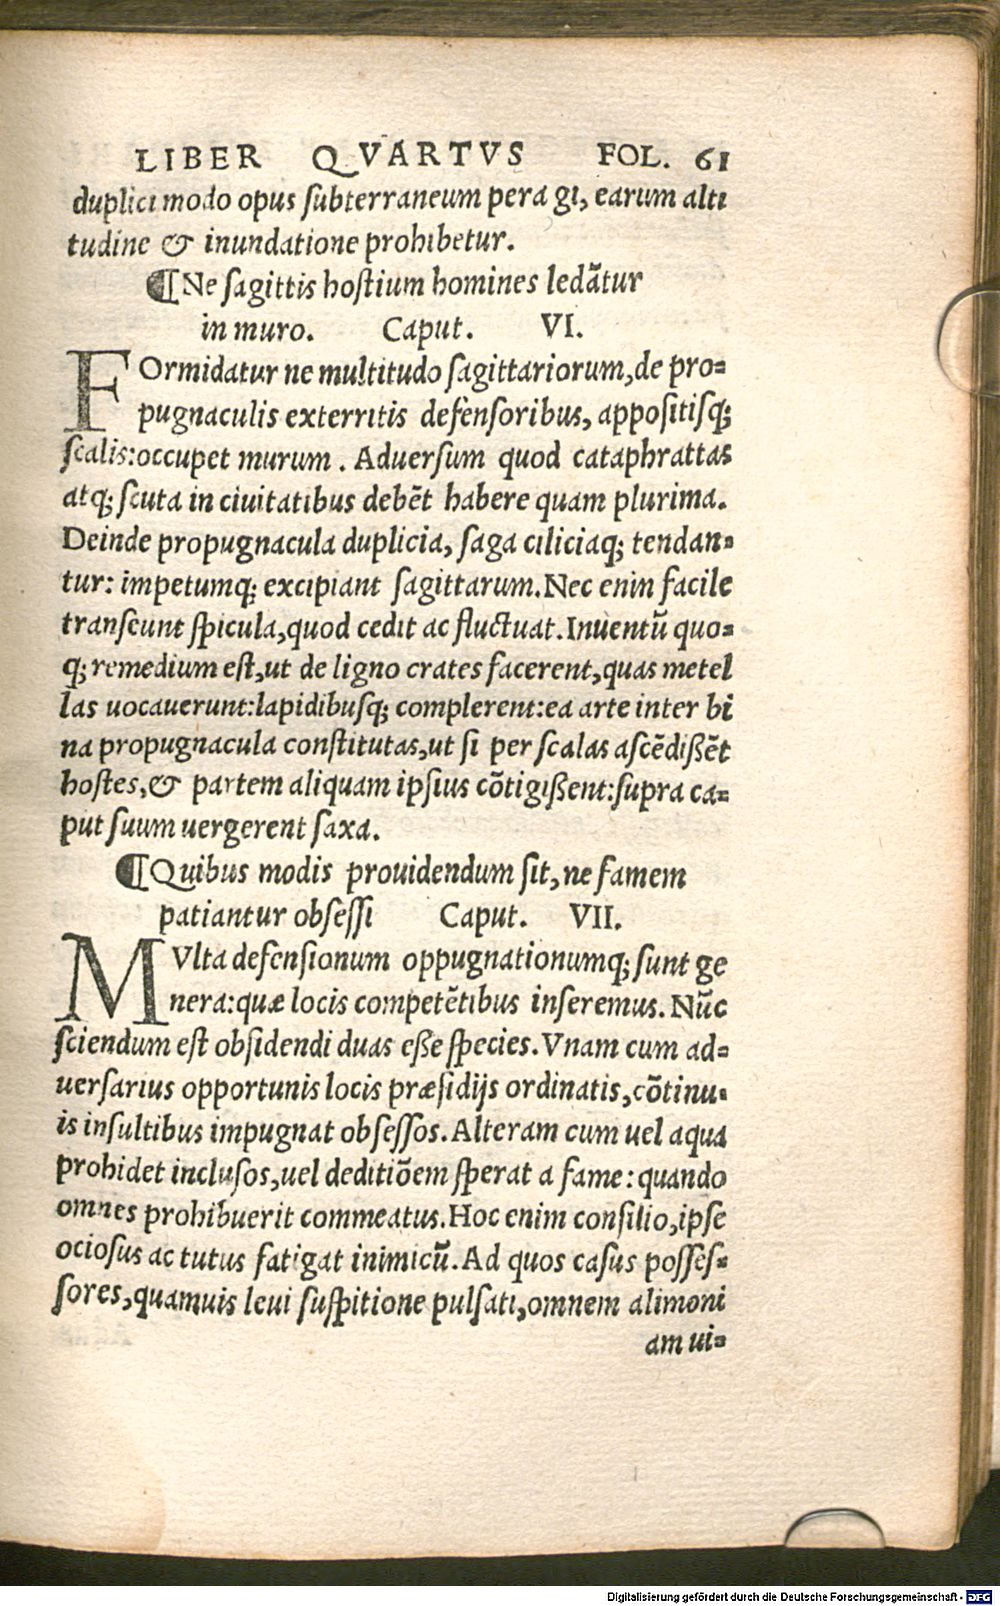 LIBER QVARTVS FOL. 61
duplici modo opus subterraneum pera gi, earum alti
tudine & inundatione prohibetur.
¶Ne sagittis hostium homines ledãtur
in muro. Caput. VI.
FOrmidatur ne multitudo sagittariorum, de pro=
pugnaculis exterritis defensoribus, appositisq;
scalis: occupet murum. Aduersum quod cataphrattas
atq; scuta in ciuitatibus debẽt habere quam plurima.
Deinde propugnacula duplicia, saga ciliciaq; tendan=
tur: impetumq; excipiant sagittarum. Nec enin facile
transeunt spicula, quod cedit ac fluctuat. Inuentũ quo=
q; remedium est, ut de ligno crates facerent, quas metel
las uocauerunt: lapidibusq; complerent: ea arte inter bi
na propugnacula constitutas, ut si per scalas ascẽdißẽt
hostes, & partem aliquam ipsius cõtigißent: supra ca=
put suum uergerent saxa.
¶Quibus modis prouidendum sit, ne famem
patiantur obsessi Caput. VII.
MVlta defensionum oppugnationumq; sunt ge
nera: quæ locis competẽtibus inseremus. Nũc
sciendum est obsidendi duas eße species. Vnam cum ad=
uersarius opportunis locis præsidijs ordinatis, cõtinu=
is insultibus impugnat obsessos. Alteram cum uel aqua
prohidet inclusos, uel deditiõem sperat a fame: quando
omnes prohibuerit commeatus. Hoc enim consilio, ipse
ociosus ac tutus fatigat inimicũ. Ad quos casus posses=
sores, quamuis leui suspitione pulsati, omnem alimoni
am ui=
Digitalisierung gefördert durch die Deutsche Forschungsgemeinschaft - DFG